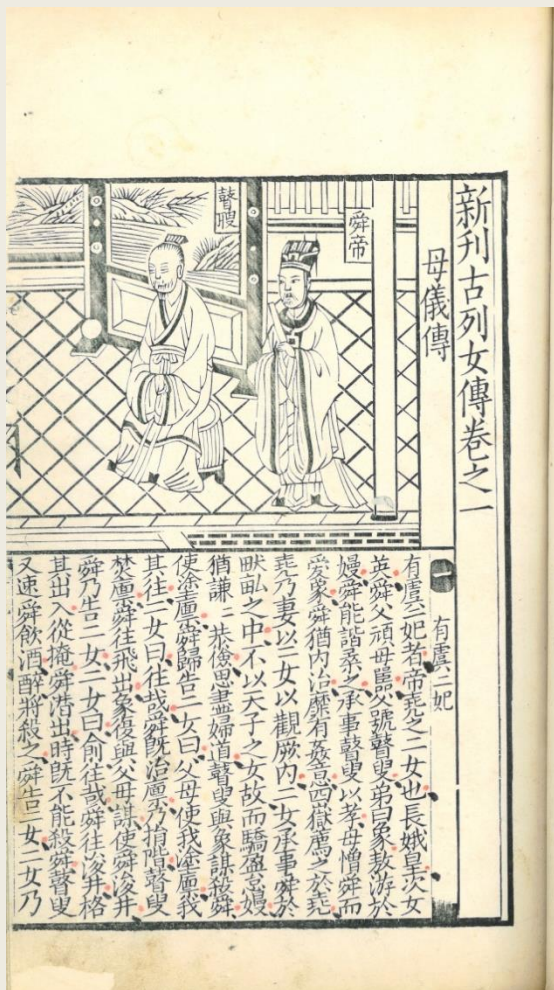 新刊古列女傳卷之一
母儀傳
舜帝
瞽瞍
一
有虞二妃
有虞二妃者帝堯之二女也長娥皇次女
英舜父頑母嚚父號瞽叟弟曰象敖游於
嫚舜能諧柔之承事瞽叟以孝母憎舜而
愛象舜猶內治靡有姦意四嶽薦之於堯
堯乃妻以二女以觀厥內二女承事舜於
畎畝之中不以天子之女故而驕盈怠嫚
猶謙二恭儉思盡婦道瞽叟與象謀殺舜
使塗廩舜歸告二女曰父母使我塗廩我
其往二女曰往哉舜既治廩乃捐階瞽叟
焚廩舜往飛出象復與父母謀使舜浚井
舜乃告二女二女曰俞往哉舜往浚井格
其出入從掩舜潛出時既不能殺舜瞽叟
又速舜飲酒醉將殺之舜告二女二女乃